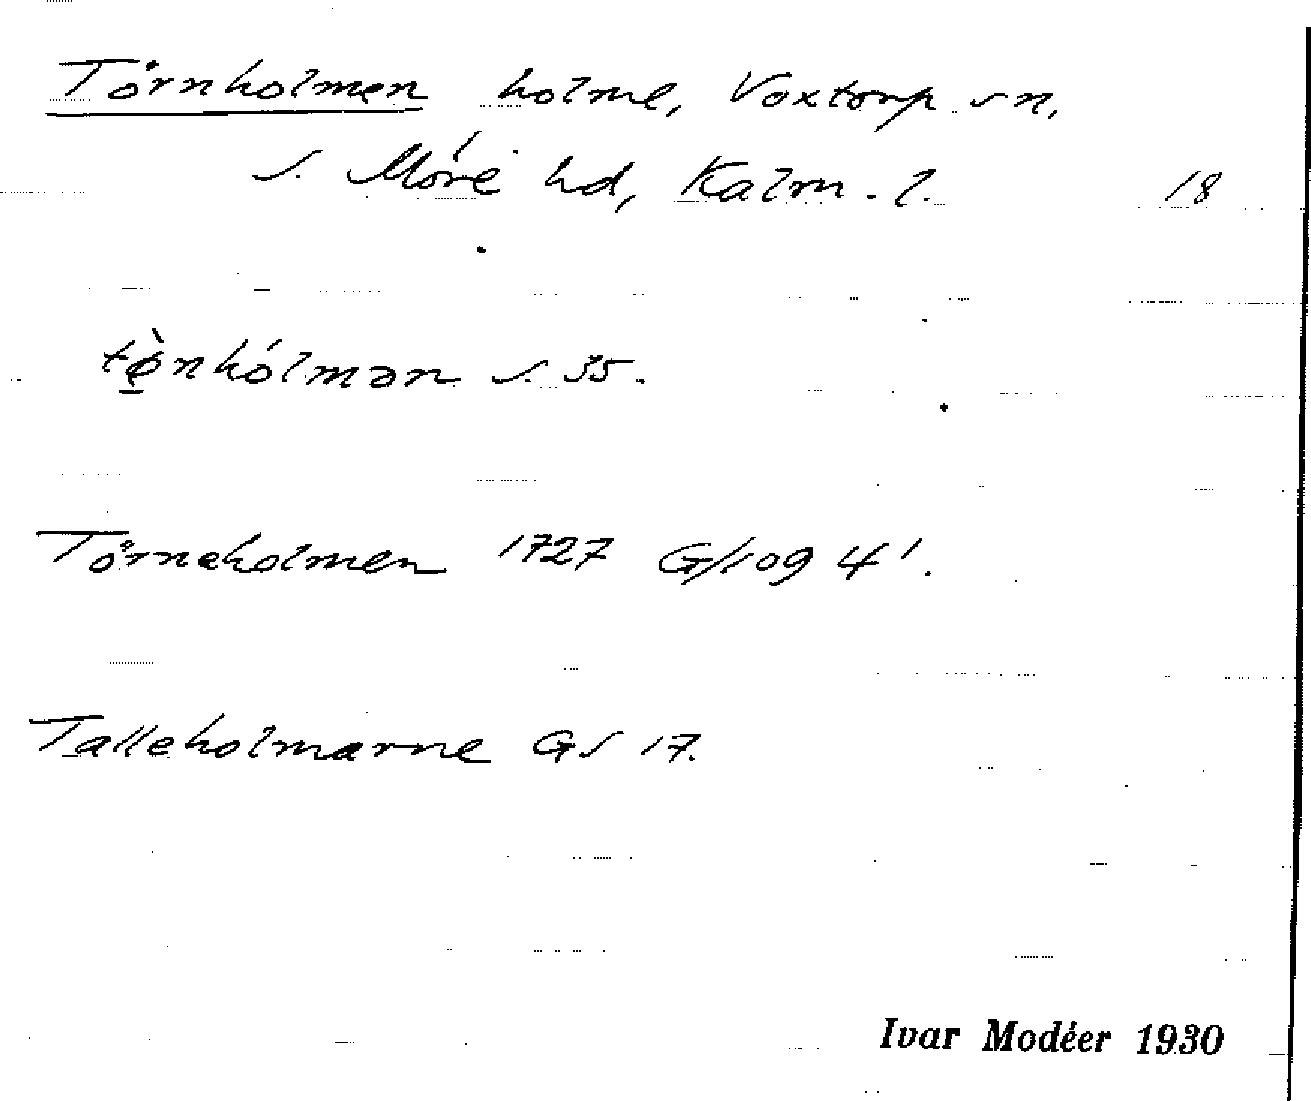 Törnholmen holme, Voxtorp sn,
S. Möre hd, Kalm. l. 18
tø̀nhólmən s. 35.
Törneholmen 1727 G/109 4¹.
Talleholmarne GS 17.
Ivar Modéer 1930